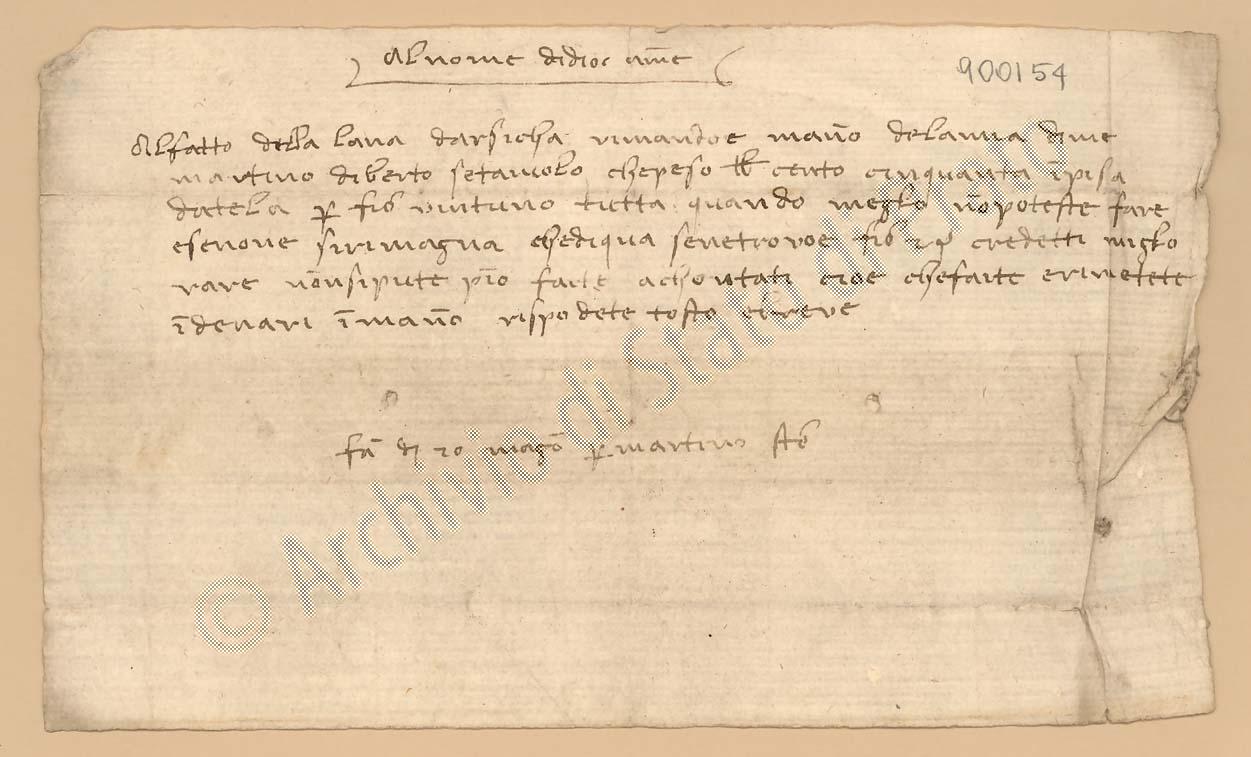 Al nome di dio ame
900154
Al fatto della lana darsicha rimandoe mano de lanna di me
martino di berto setaiolo che peso lb cento cinquanta i pisa
datela p fio vintuno tutta quando meglo no poteste fare
e se none si rimagna che di qua se ne trovoe fio credetti miglo
rare non si pute pio fatte achontati cioe che fatte e rimetete
i denari i mano rispodete tosto e breve
di 20 magо̄ p martino
© Archivio di Stato di Prato